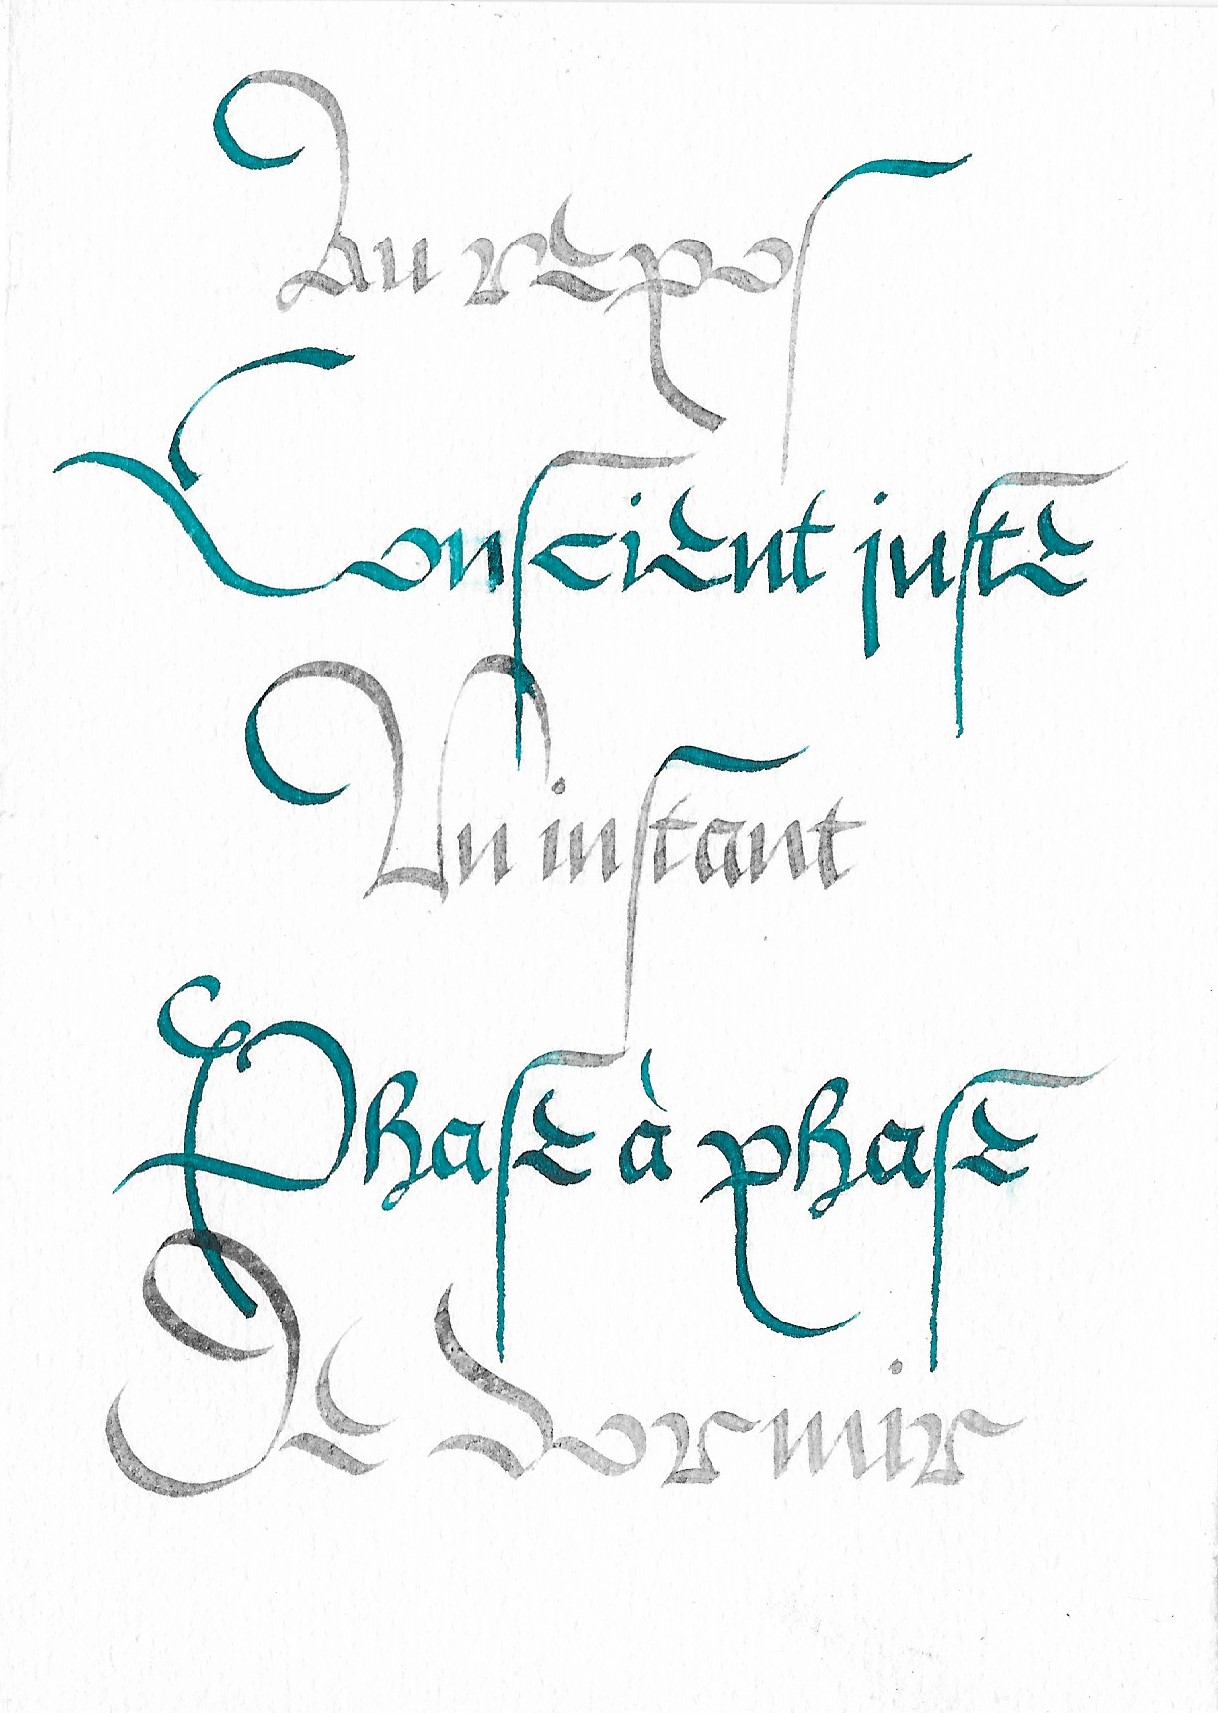 Au repos
Conscient juste
Un instant
Phase à phase
Je dormir